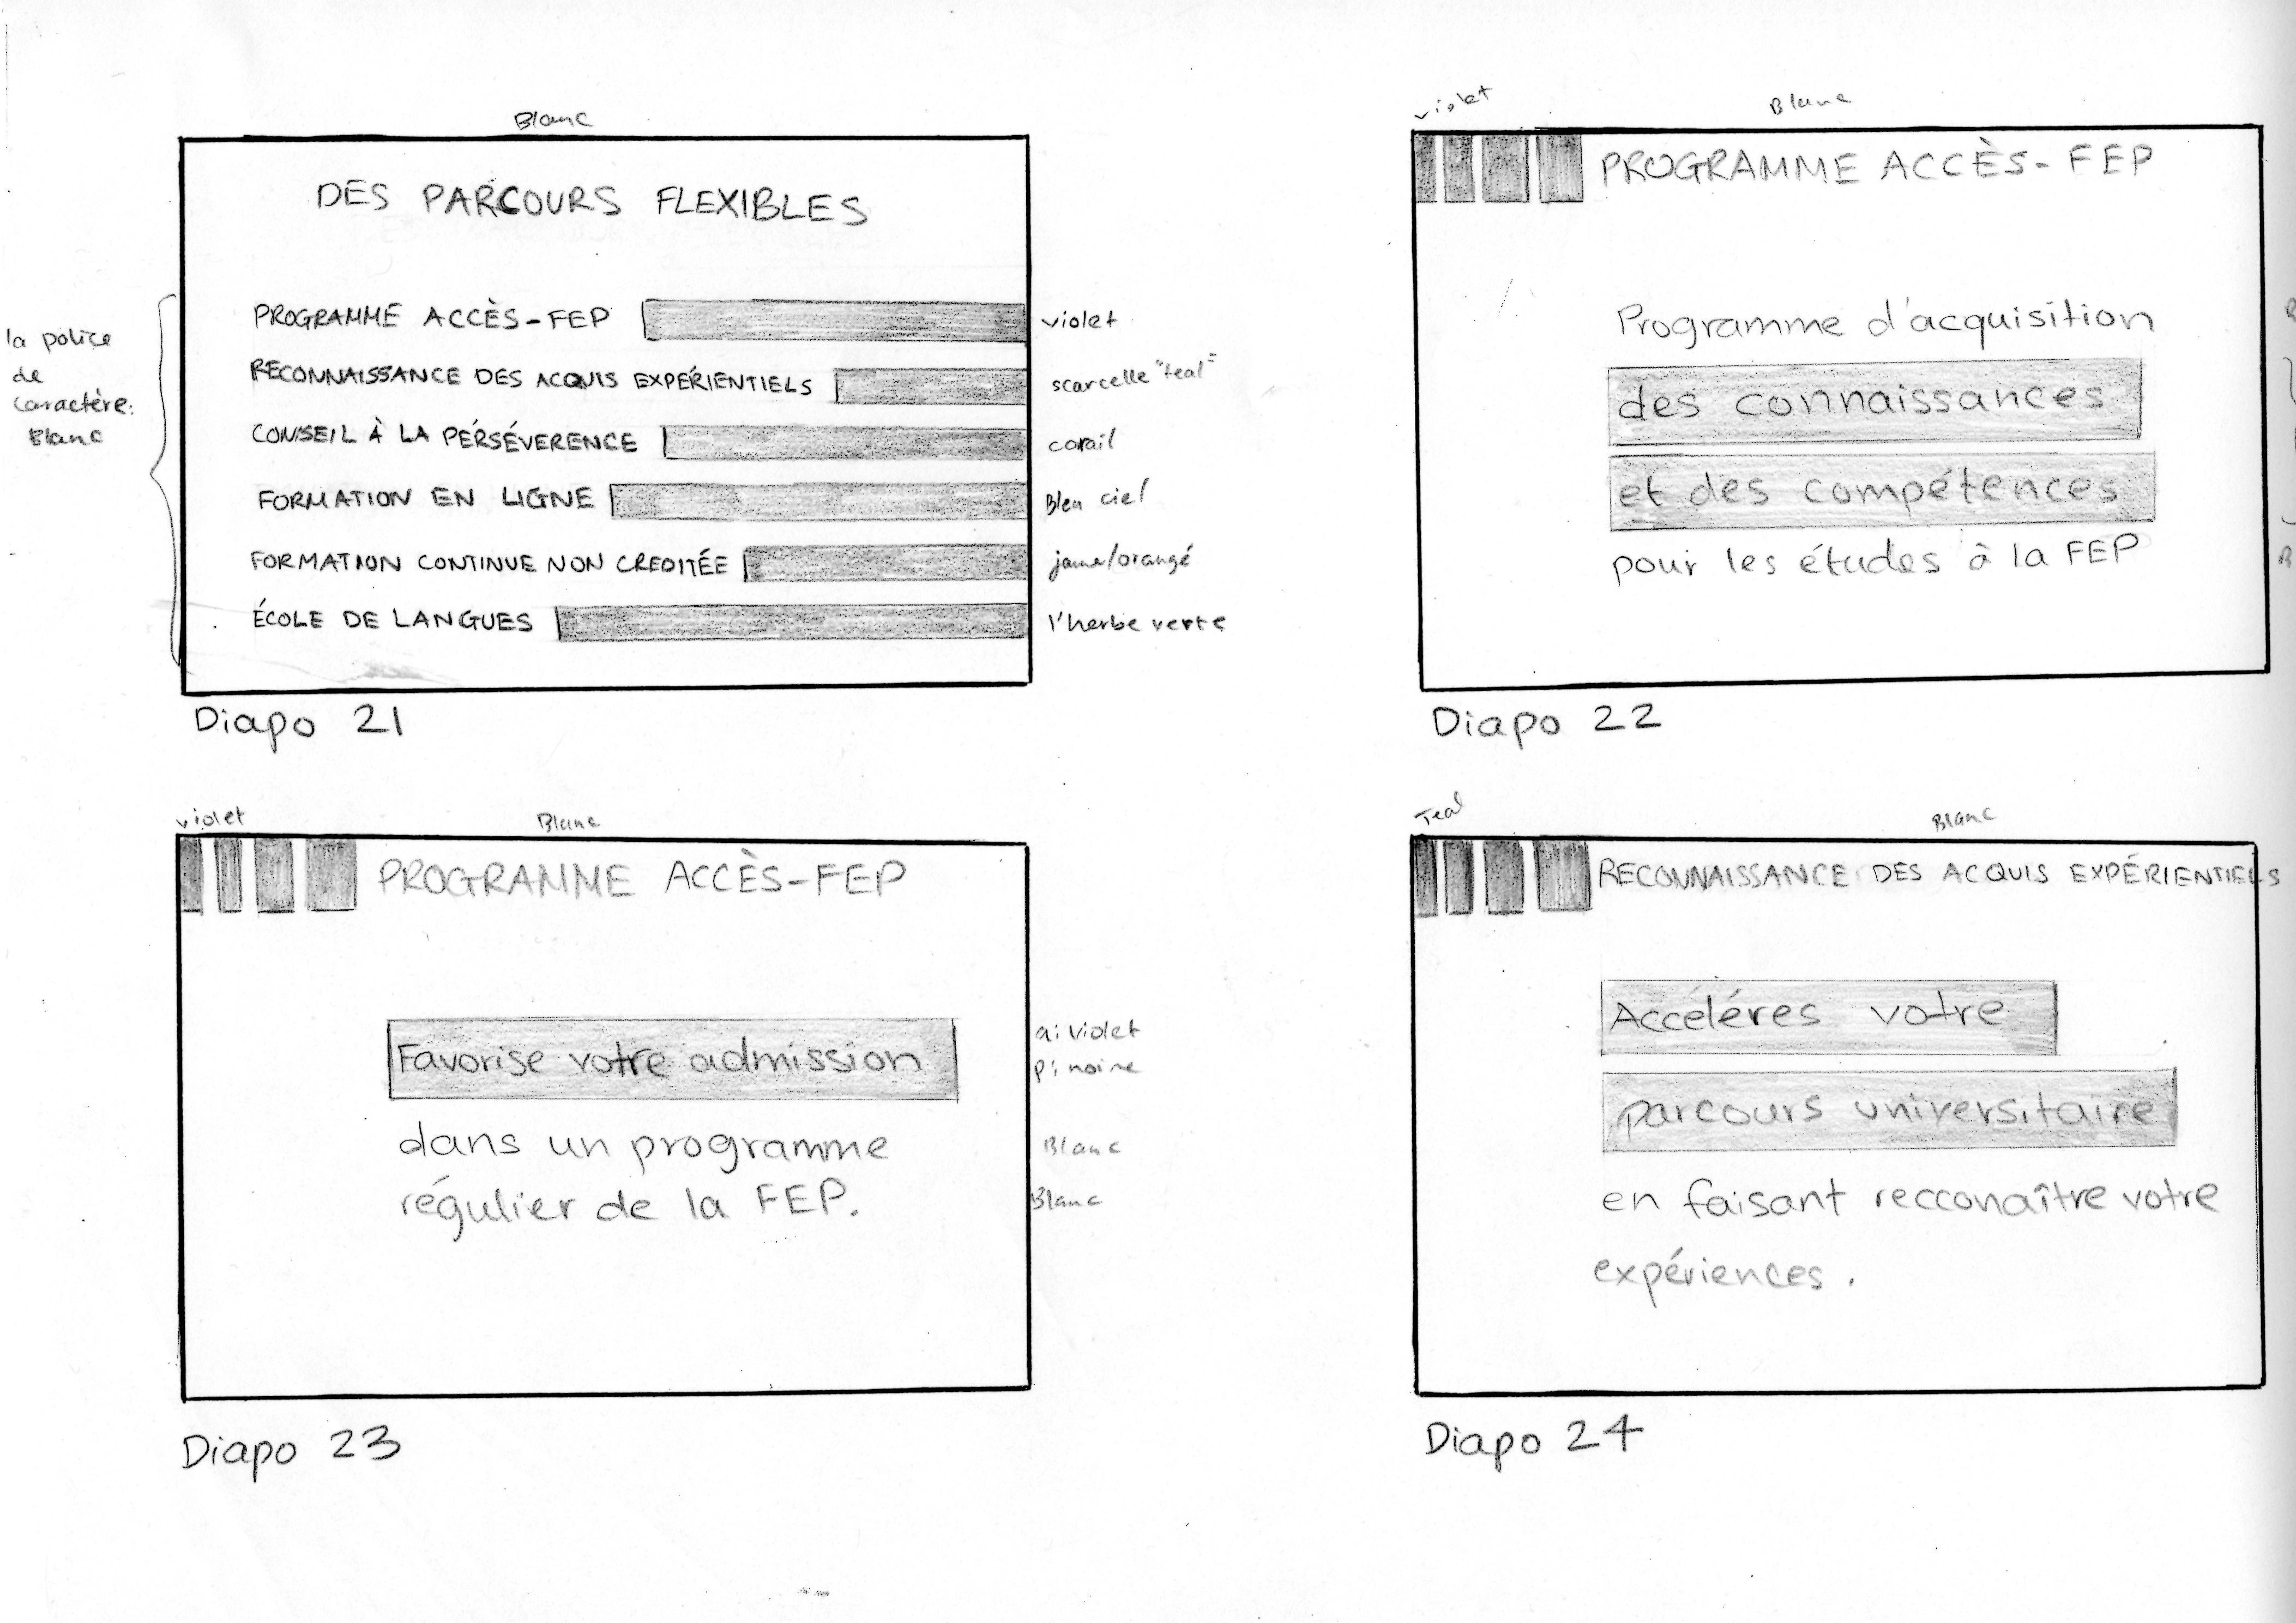 Blanc
DES PARCOURS FLEXIBLES
la police
de
caractère:
Blanc
PROGRAMME ACCÈS-FEP
violet
RECONNAISSANCE DES ACQUIS EXPÉRIENTIELS
scarcelle "teal"
CONSEIL À LA PERSÉVERENCE
corail
FORMATION EN LIGNE
Bleu ciel
FORMATION CONTINUE NON CREDITÉE
jaune/orangé
ÉCOLE DE LANGUES
l'herbe verte
Diapo 21
violet
Blanc
PROGRAMME ACCÈS-FEP
Programme d'acquisition
des connaissances
et des compétences
pour les études à la FEP
Diapo 22
violet
Blanc
PROGRAMME ACCÈS-FEP
Favorise votre admission
a: violet
p: noire
dans un programme
Blanc
régulier de la FEP.
Blanc
Diapo 23
Teal
Blanc
RECONNAISSANCE DES ACQUIS EXPÉRIENTIELS
Accéléres votre
parcours universitaire
en faisant recconaître votre
expériences.
Diapo 24